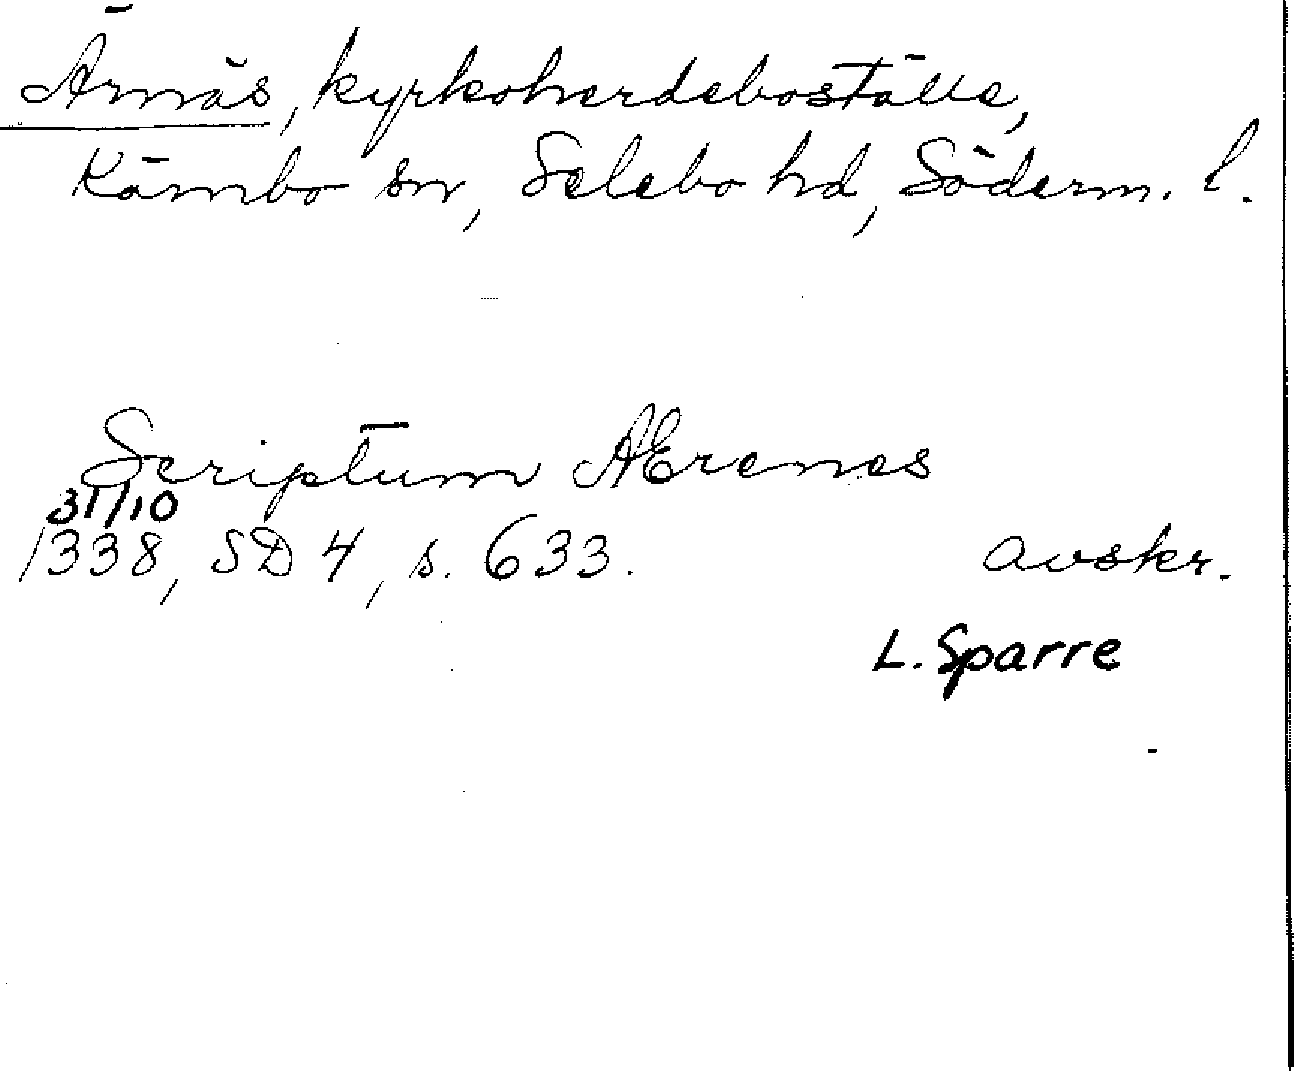 Ärnäs, kyrkoherdeboställe,
Kärnbo sn, Selebo hd, Söderm. l.
Scriptum AErenes
31/10
1338, SD 4, s. 633. avskr.
L. Sparre